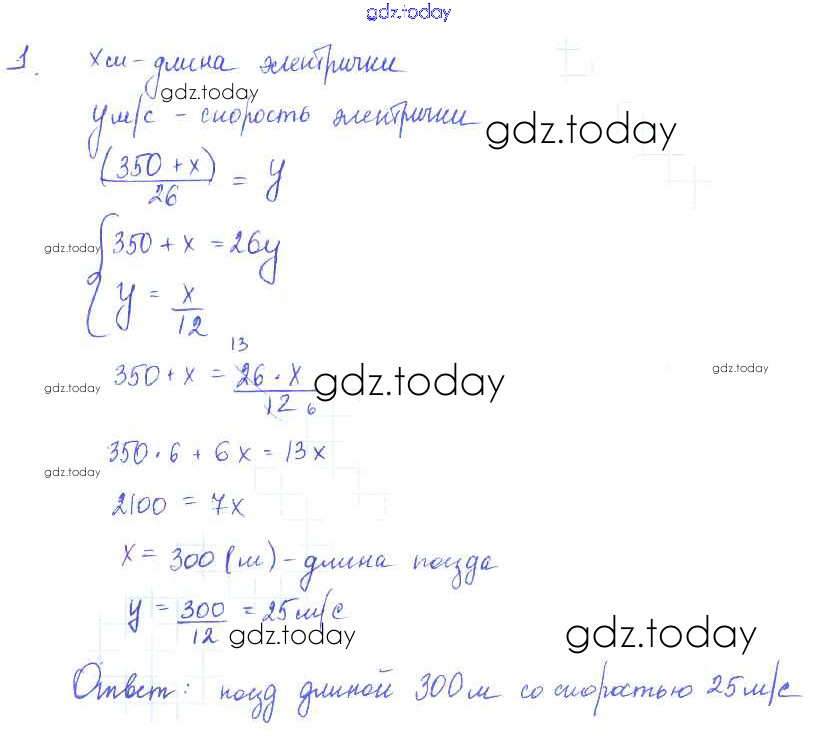 gdz.today
1. x м - длина электрички
gdz.today
y м/с - скорость электрички
gdz.today
(350 + x) / 26 = y
gdz.today
{ 350 + x = 26y
y = x / 12
gdz.today
13
350 + x = 26 · x / 12 6
gdz.today
gdz.today
350 · 6 + 6x = 13x
gdz.today
2100 = 7x
x = 300 (м) - длина поезда
y = 300 / 12 = 25 м/с
gdz.today
gdz.today
Ответ: поезд длиной 300 м со скоростью 25 м/с